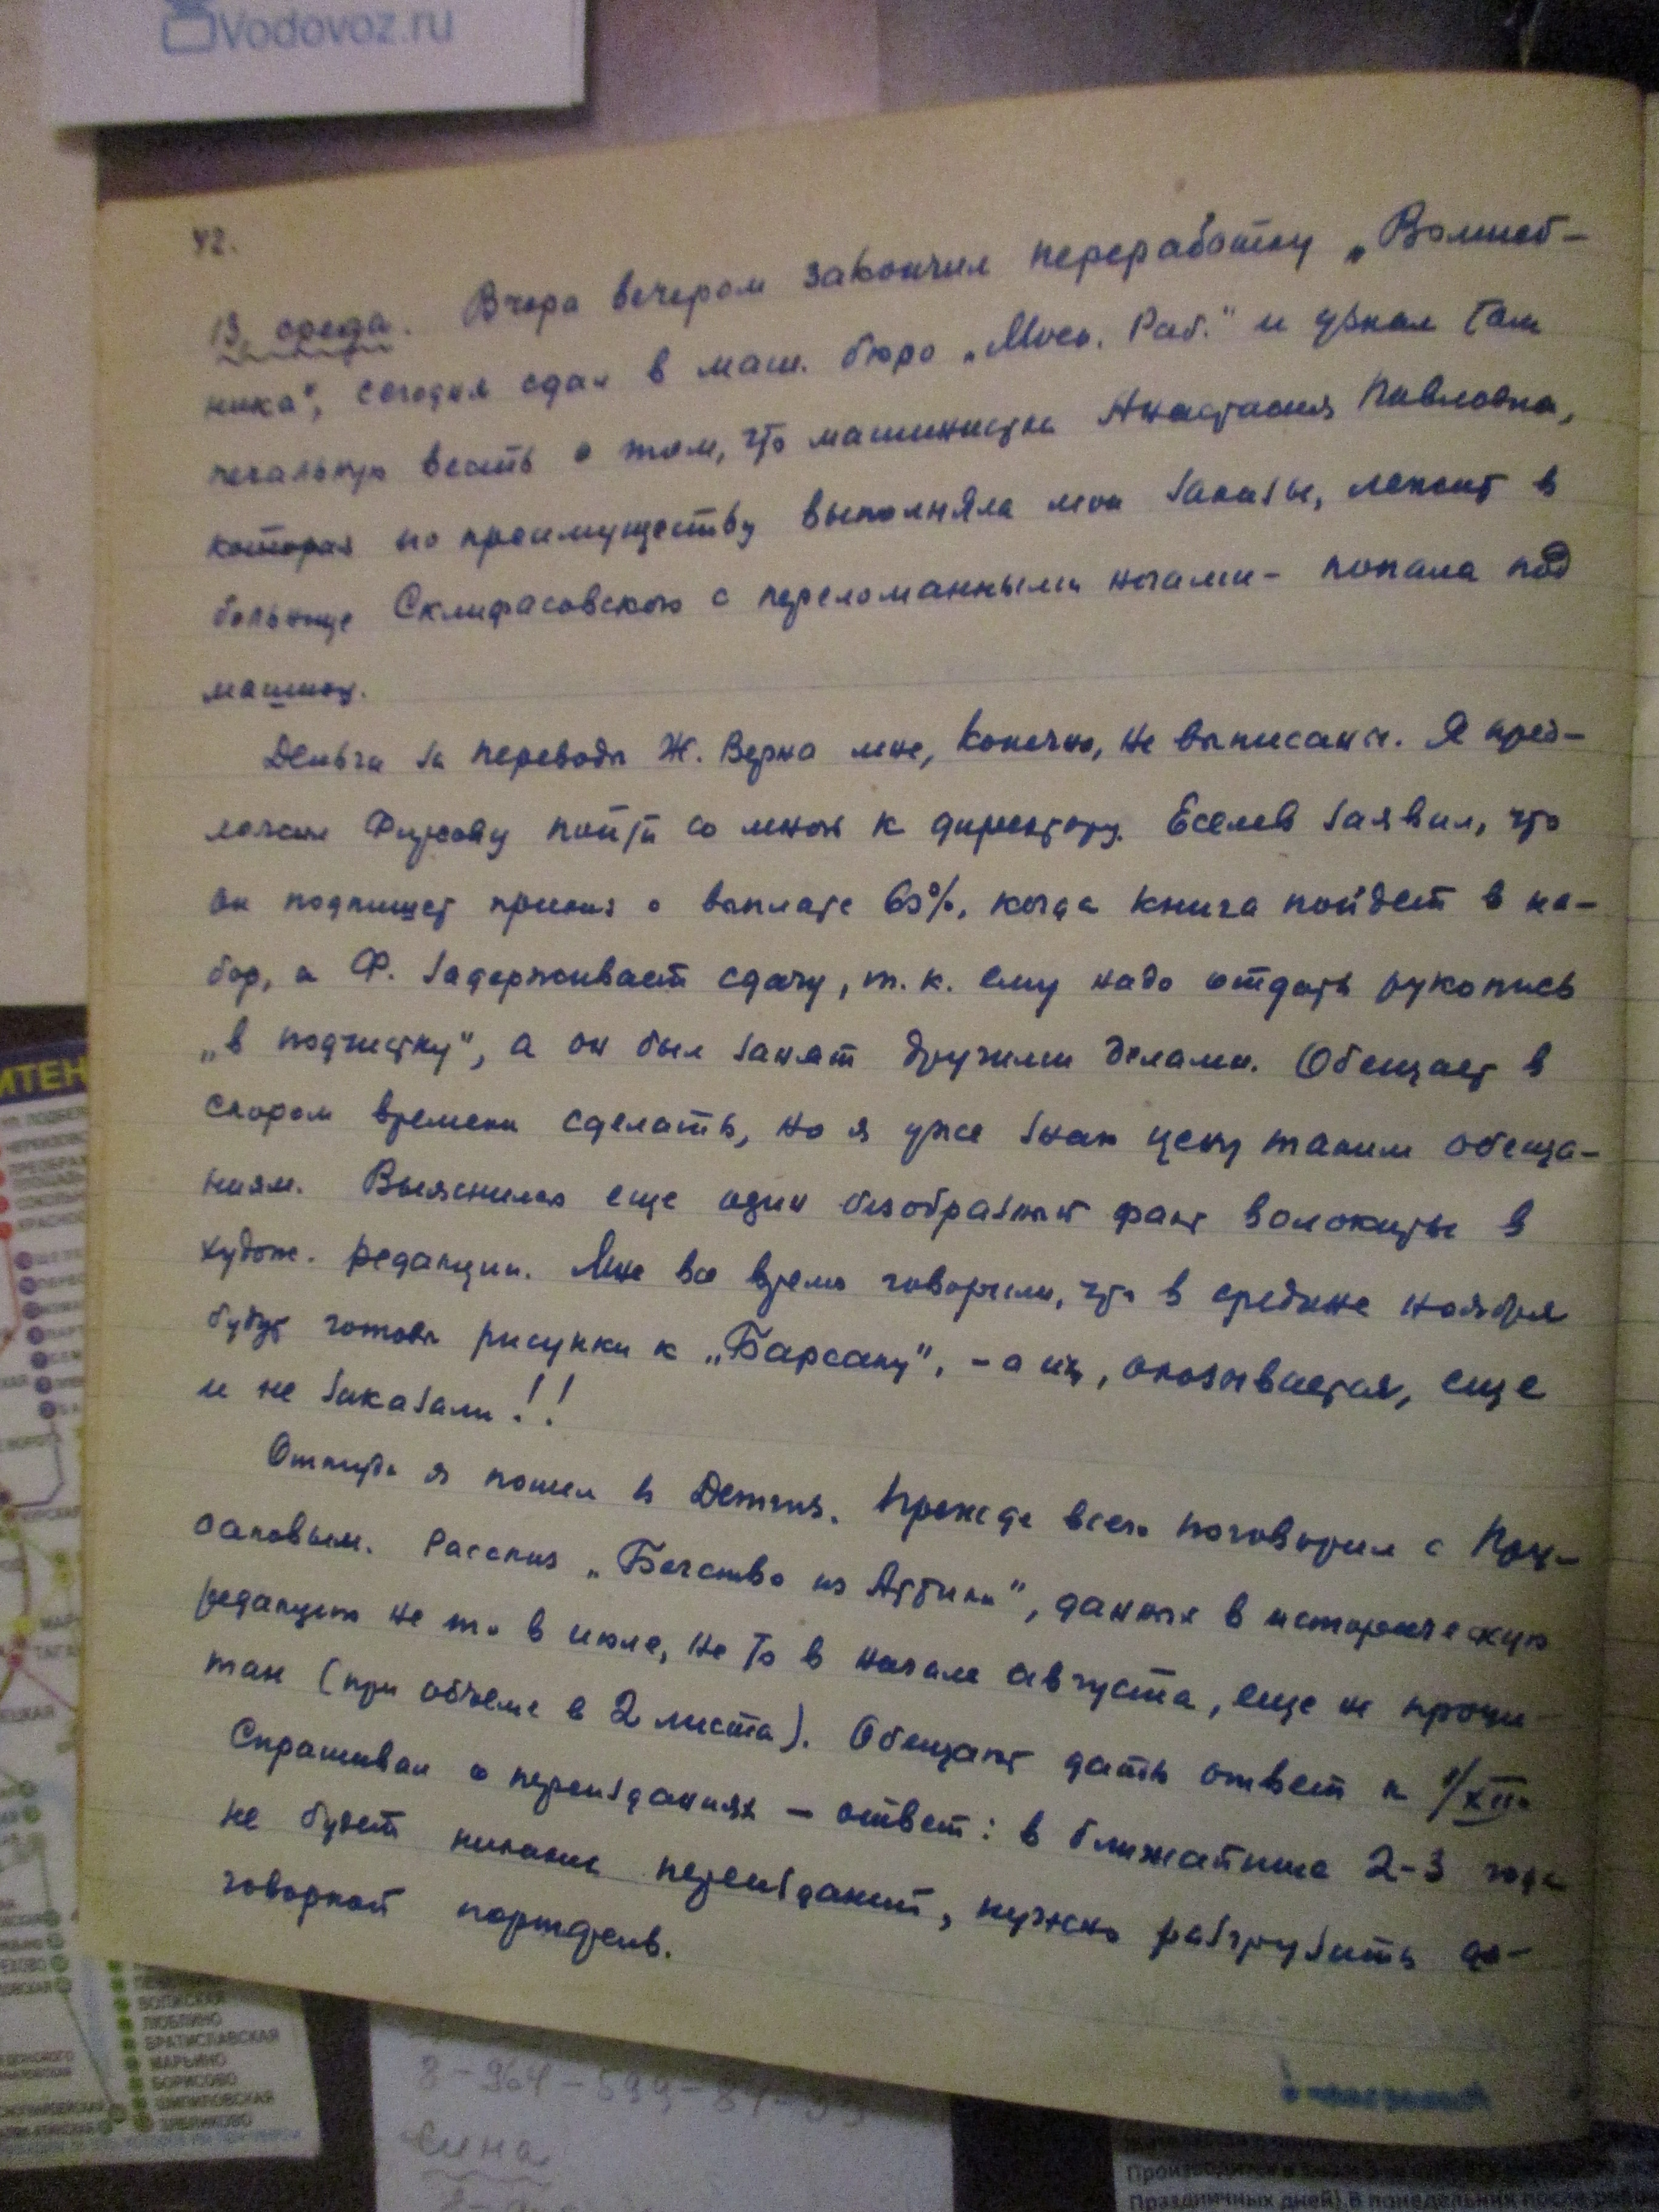 Vodovoz.ru
42.
13, среда. Вчера вечером закончил переработку „Волшеб-
ника", сегодня сдал в маш. бюро „Моск. Раб." и узнал там
печальную весть о том, что машинистка Анастасия Павловна,
которая по преимуществу выполняла мои заказы, лежит в
больнице Склифасовского с переломанными ногами – попала под
машину.
Деньги за переводы Ж. Верна мне, конечно, не выписаны. Я пред-
ложил пойти со мной к директору. Еселев заявил, что
он подпишет приказ о выплате 60%, когда книга пойдет в на-
бор, а Ф. задерживает сдачу, т. к. ему надо отдать рукопись
„в подчистку", а он был занят другими делами. Обещает в
скором времени сделать, но я уже знаю цену таким обеща-
ниям. Выяснился еще один безобразный факт волокиты в
худож. редакции. Мне все время говорили, что в средине ноября
будут готовы рисунки к „Барсаку", – а их, оказывается, еще
и не заказали!!
Оттуда я пошел в Детгиз. Прежде всего поговорил с Пру-
саковым. Рассказ „Бегство из Аттики", данный в историческую
редакцию не то в июле, не то в начале августа, еще не прочи-
тан (при объеме в 2 листа). Обещают дать ответ к 1/XII.
Спрашивал о переизданиях – ответ: в ближайшие 2-3 года
не будет никаких переизданий, нужно разгрузить до-
говорной портфель.
ИТЕН
ВОЛЖСКАЯ
ЛЮБЛИНО
БРАТИСЛАВСКАЯ
МАРЬИНО
БОРИСОВО
ШИПИЛОВСКАЯ
ЗЯБЛИКОВО